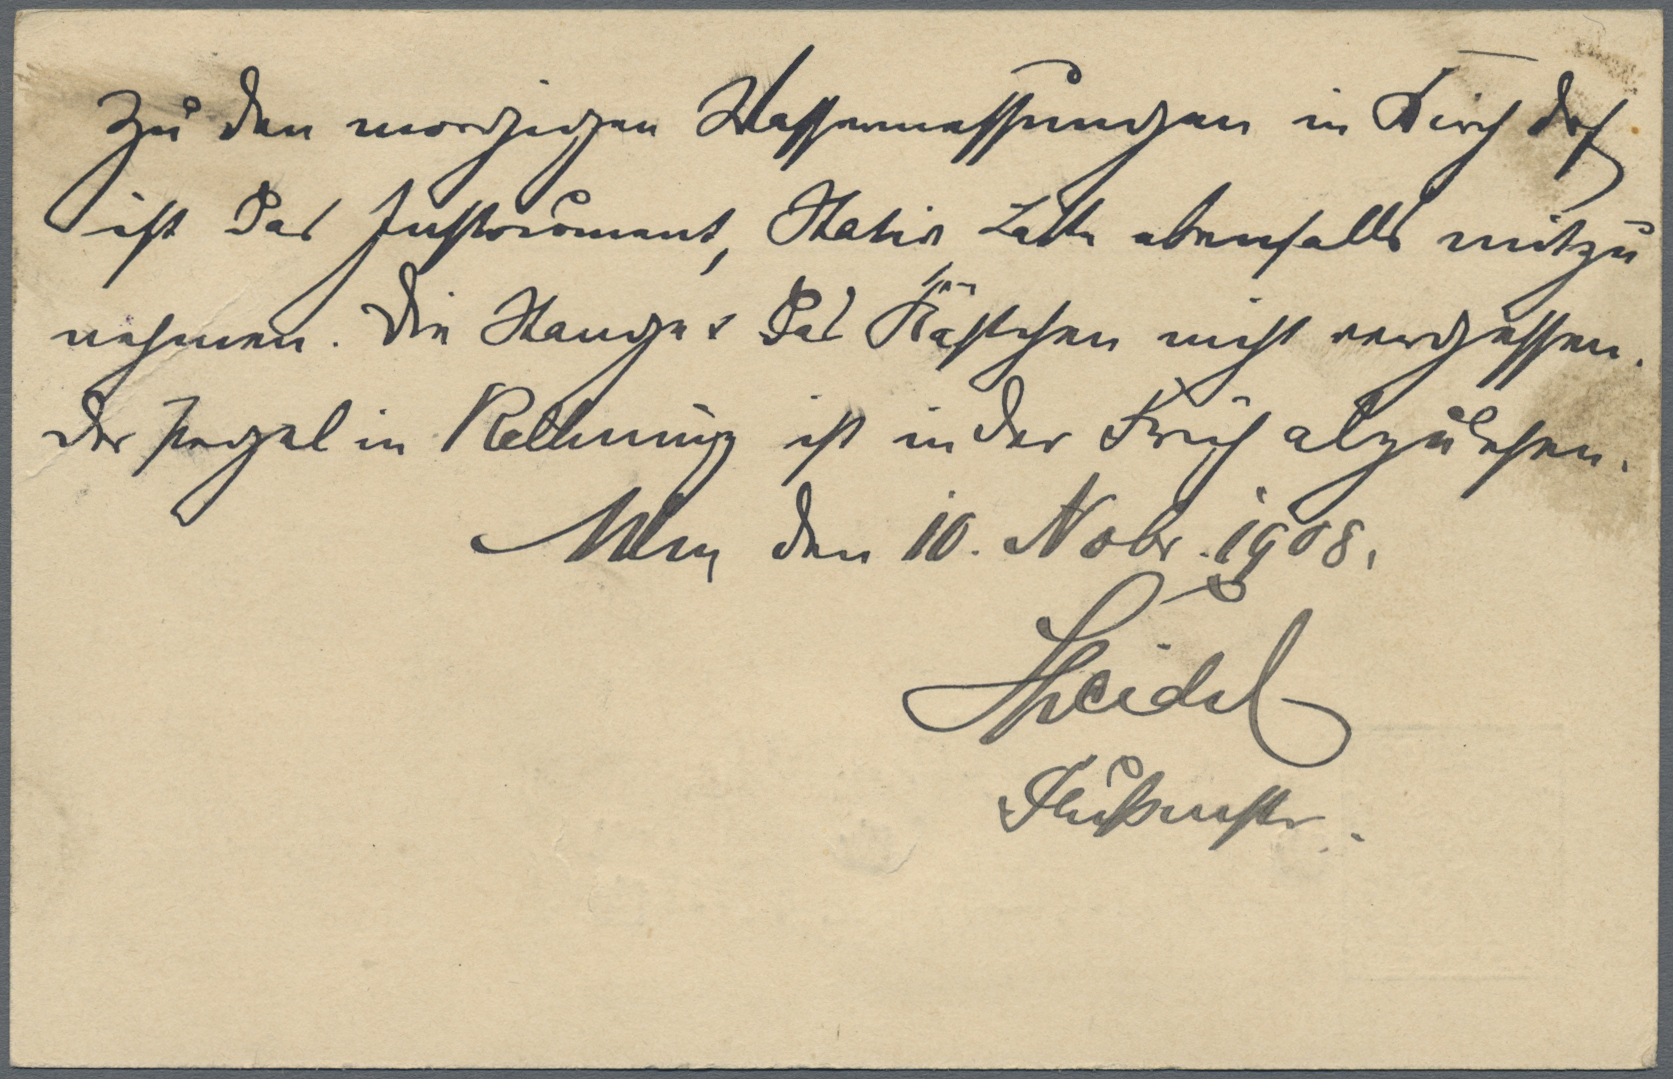 Zu den morgigen Wassermessungen in Kirchdf
ist das Instrument, Stativ Latte ebenfalls mitzu
nehmen. Die Stange & das Kästchen nicht vergessen.
Der Pegel in Kellmünz ist in der Früh abzulesen.
Ulm, den 10. Nobr. 1908.
Speidel
Flußmstr.